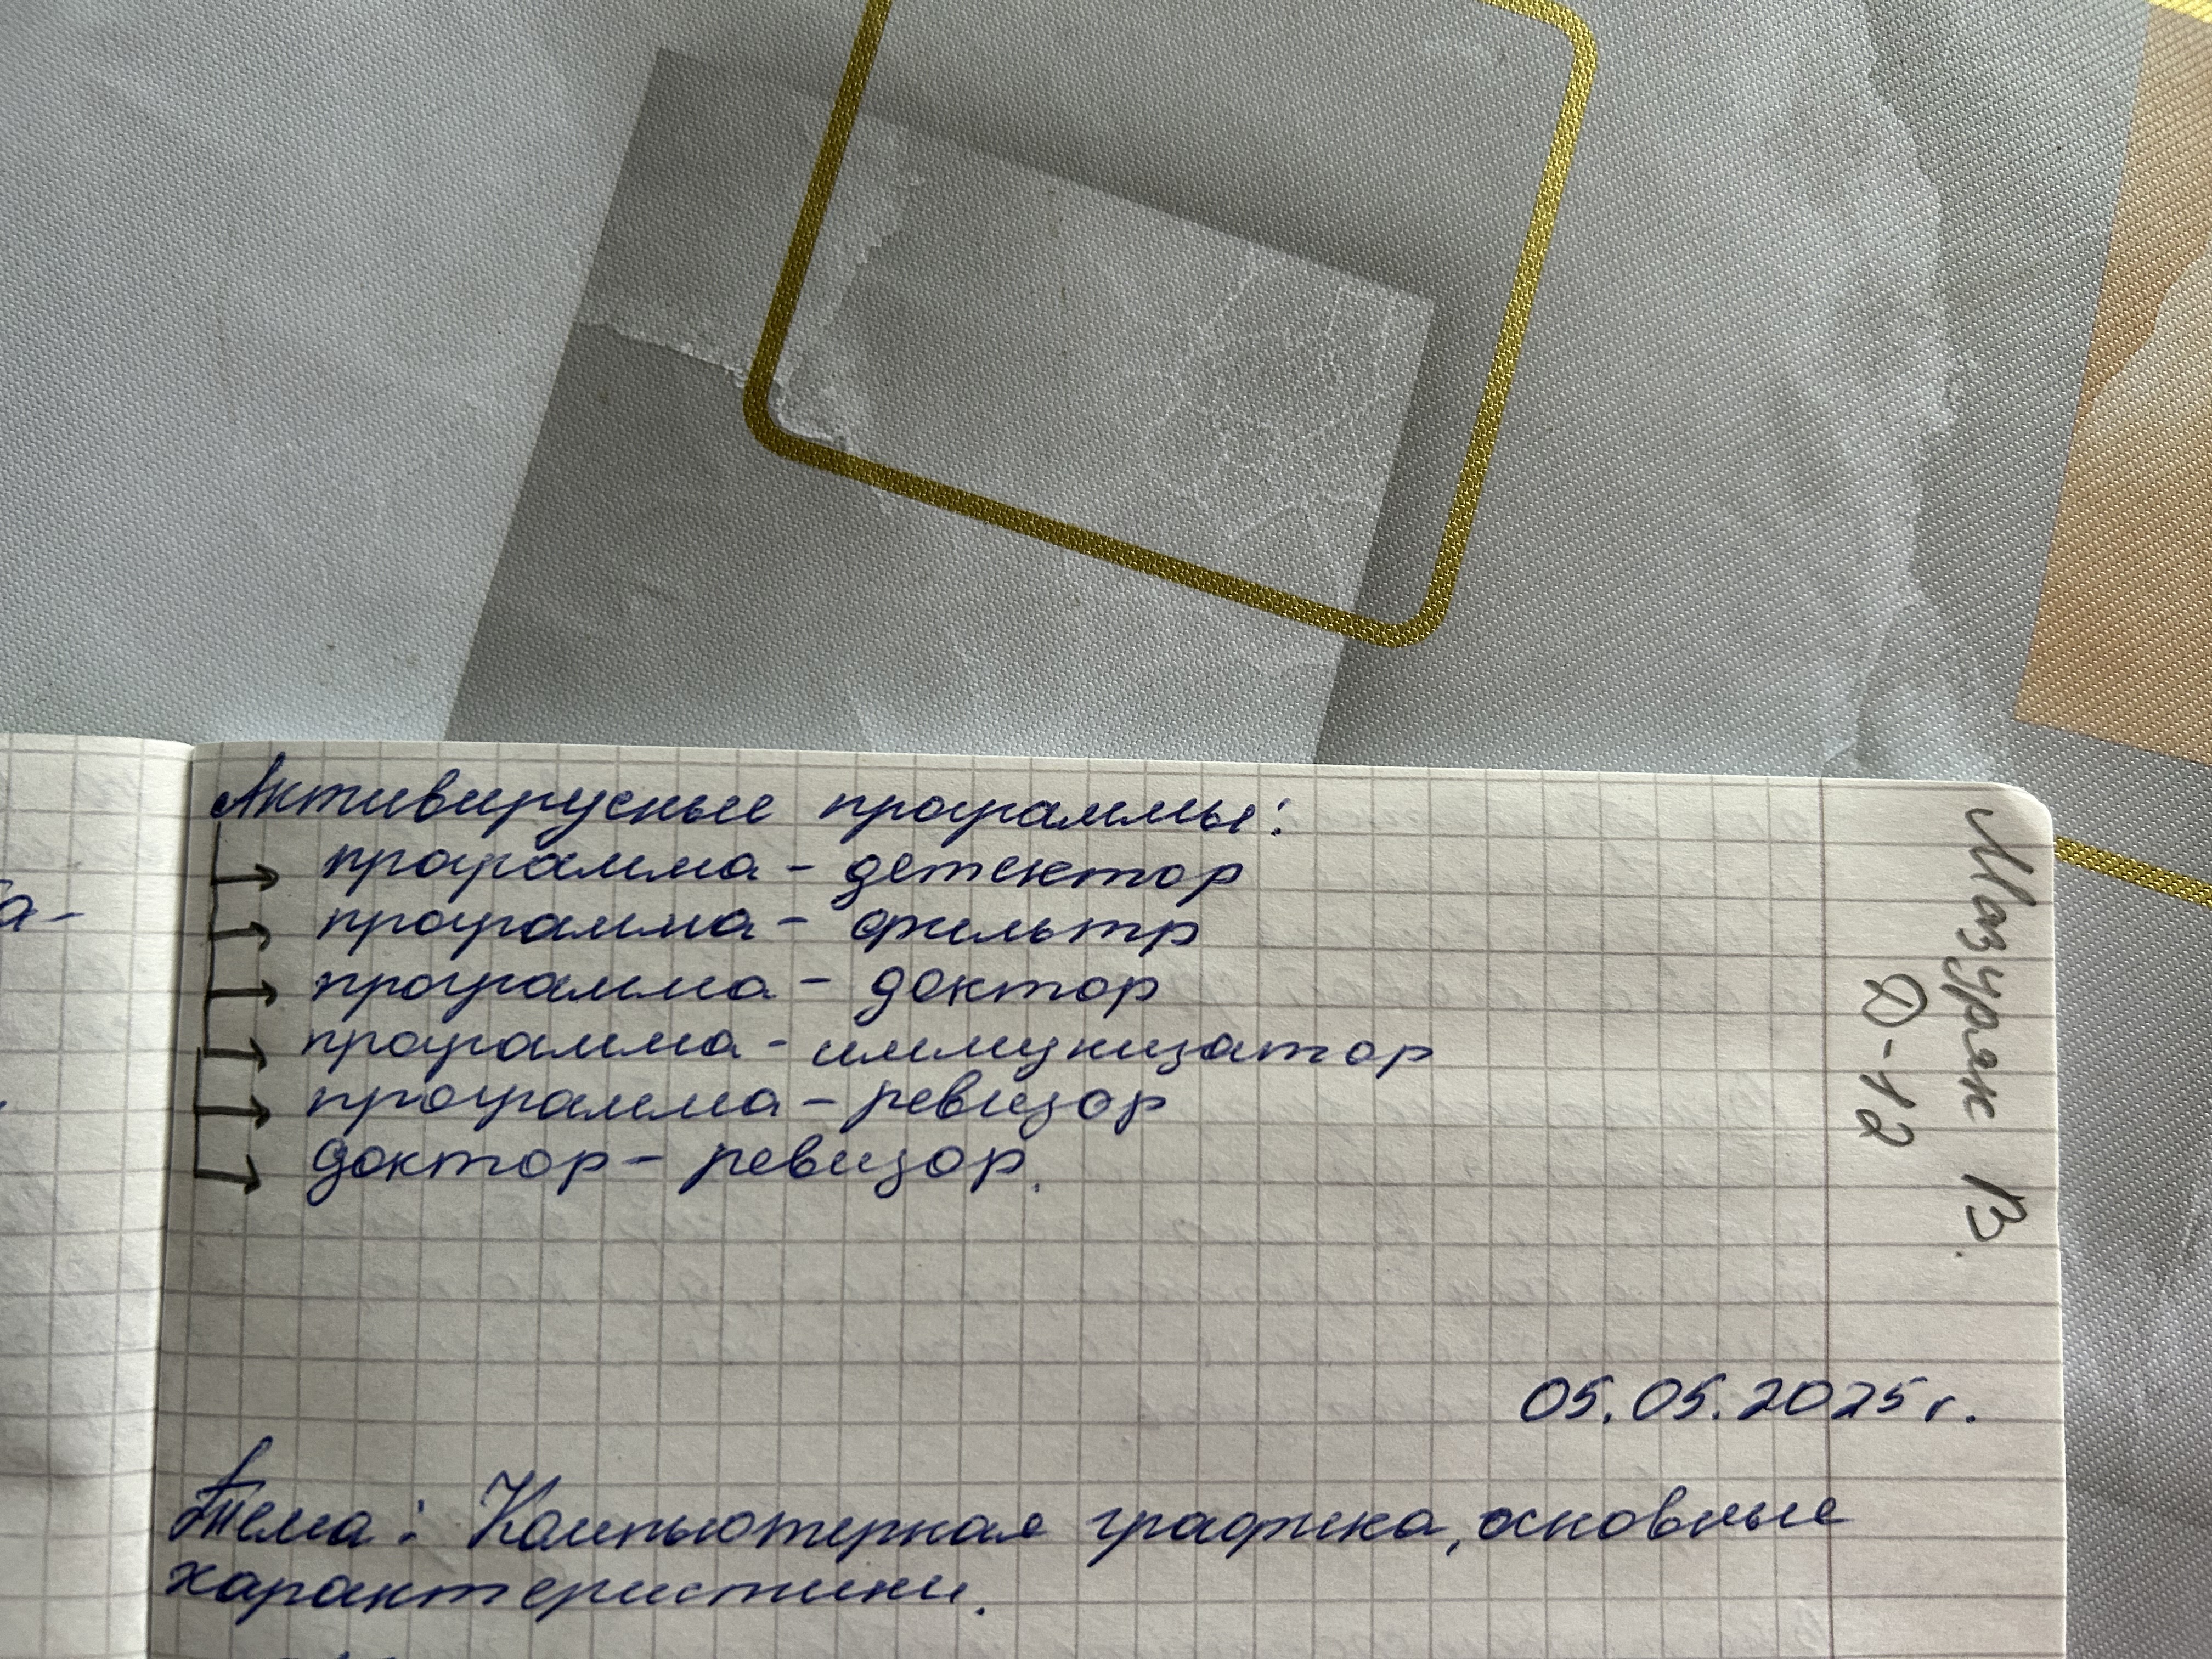 Антивирусные программы:
программа - детектор
программа - фильтр
программа - доктор
программа - иммунизатор
программа - ревизор
доктор - ревизор.
Мазуряк В.
Ф-12
05.05.2025 г.
Тема: Компьютерная графика, основные
характеристики.
а-